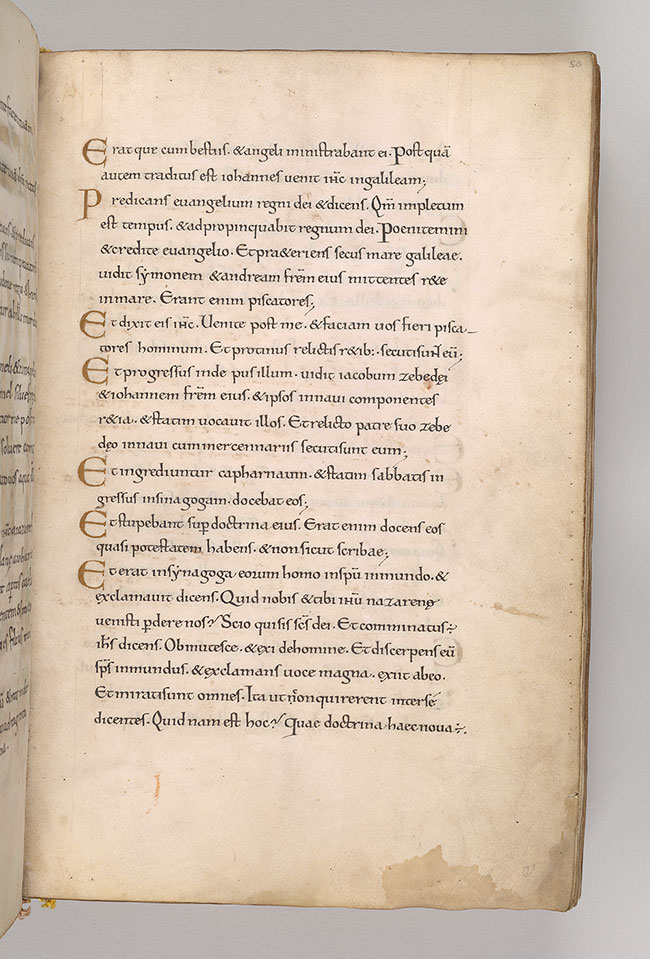 50
Eratque cum bestiis. & angeli ministrabant ei. Post quā
autem traditus est iohannes uenit ihc ingalileam;
Predicans euangelium regni dei & dicens. Qm̄ impletum
est tempus. & adpropinquabit regnum dei. Poenitemini
& credite euangelio. Et pra&eriens secus mare galileae.
uidit symonem & andream frēm eius mittentes r&e
inmare. Erant enim piscatores;
Et dixit eis ihc. Uenite post me. & faciam uos fieri pisca
tores hominum. Et protinus relictis r&ib: secuti sunt eū;
Et progressus inde pusillum. uidit iacobum zebedęi
& iohannem frēm eius. & ipsos innaui componentes
r&ia. & statim uocauit illos. Et relicto patre suo zebe
dęo innaui cum mercennariis secuti sunt eum;
Et ingrediuntur capharnaum. & statim sabbatis in
gressus insinagogam. docebat eos;
Et stupebant sup̄ doctrina eius. Erat enim docens eos
quasi potestatem habens. & non sicut scribae;
Et erat insynagoga eorum homo inspū inmundo. &
exclamauit dicens. Quid nobis & tibi ihū nazarene
uenisti pdere nos? Scio quisis scs̄ dei. Et comminatus÷
ihs̄ dicens. Obmutesce. & exi dehomine. Et discerpens eū
sps̄ inmundus. & exclamans uoce magna. exiit abeo.
Et miratisunt omnes. Ita ut nonquirerent interse
dicentes. Quid nam est hoc? Quae doctrina haec noua÷.